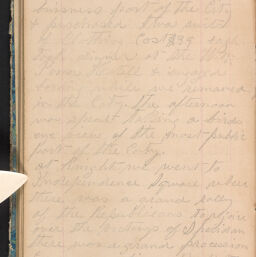 business part of the City
& purchased two suits
of Clothing Cost $39 each
Took dinner at the
Hotell & engaged
while we remained
in the City. The afternoon
was spent taking a birds
eye view of the most public
part of the City.
At knight we went to
Independence Square where
there was a grand rally
of the Republicans to rejoice
over the victorys of Sheridan
there was a grand procession